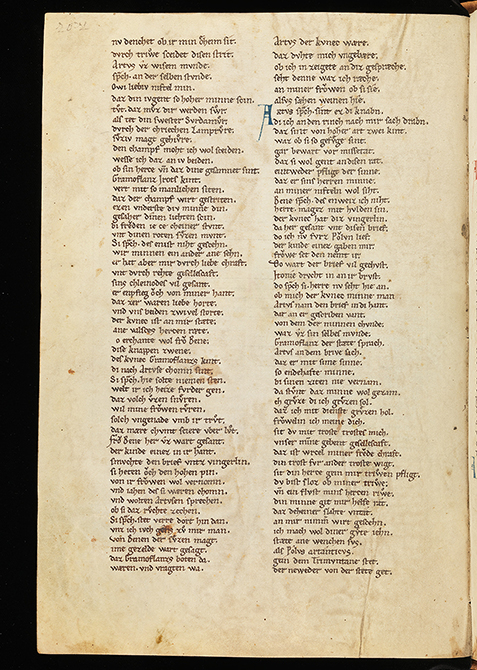 nv denchet ob ir min ŏheim sit.
dvrch triwe scheidet disen strit.
Artvs vz wisem mvnde.
spch. an der selben stvnde.
Owi liebiv niftel min.
daz din ivgent so hoher minne sein.
tvt. daz mvz dir werden svr.
als tet din swester Svrdamvr
dvrch der chriechen Lampvre.
svziv magt gehvre.
den champf moht ich wol scheiden.
wesse ich daz an iv beiden.
ob sin herce vñ daz dine gesamnet sint.
Gramoflanz Irots kint.
vert mit so manlichen siten.
daz der champf wirt gestriten.
ezen vnderste div minne din.
gesaher dinen liehten scin.
bi frŏden ie ce cheiner stvnt.
vnt dinen roten svzen mvnt.
Si spch. des enist niht gescehn.
wir minnen ein ander ane sehn.
er hat aber mir dvrch liebe chraft.
vnt dvrch rehte gesellescaft.
sine chleinodes vil gesant.
er enpfieg ŏch von miner hant.
daz zer waren liebe horte.
vnd vns beiden zwivel storte.
der kvnec ist an mir stæte.
ane valsces hercen ræte.
o erchante wol frŏ Bene.
dise knappen zwene.
des kvnec Gramoflanzs kint.
di nach Artvse chomin sint.
Si spch. hie solte niemen sten.
welt ir ich heize fvrder gen.
daz volch vzen snvren.
wil mine frŏwen rvren.
solch vngenade vmb ir trvt.
daz mære chvmt sciere vber lvt.
frŏ Bene her vz wart gesant.
der kinde einez in ir hant.
smvchte den brief vnt vingerlin.
si heten ŏch den hohen pin.
von ir frŏwen wol vernomn.
vnd iahen des si wæren chomn.
vnd wolten Artvsen sprechen.
ob si daz rvchte zechen.
Si spch. stet verre dort hin dan.
vnz ich ivch zv mir man.
von Benen der svzen magt.
imt gezelde wart gesagt.
daz Gramoflanzs boten da.
wæren. vnd vragten wa.
Artvs der kvnec wære.
daz dvhte mich vngebære.
ob ich in zeigete an diz gespræche.
seht denne waz ich ræche.
an miner frŏwen ob si sie.
alsvs sæhen weinen hie.
Artvs spch. sint ez di knabn.
di ich an den rinch nach mir sach drabn.
daz sint von hoher art zwei kint.
waz ob si so gefvge sint.
gar bewart vor missetat.
daz si wol gent an disen rat.
eintweder pfliget der sinne.
daz er sins herren minne.
an miner nifteln wol siht.
Bene spch. des enweiz ich niht.
herre mager mit hvlden sin.
der kvnec hat diz vingerlin.
da her gesant vnt disen brief.
do ich nv fvrz Povlvn lief.
der kinde einez gaben mir.
frŏwe set den nemt ir.
Do wart der brief vil gechvst.
Itonie drvcht in an ir brvst.
do spch si. herre nv seht hie an.
ob mich der kvnec minne man.
Artvs nam den brief in di hant.
dar an er gescriben vant.
von dem der minnen chvnde.
waz vz sin selbes mvnde.
Gramoflanz der stæte sprach.
Artvs an dem brive sach.
daz er mit sime sinne.
so endehafte minne.
bi sinen ziten nie vernam.
da stvnt daz minne wol gezam.
ich grvze di ich grvzen sol.
daz ich mit dienste grvzen hol.
frŏwelin ich meine dich.
sit dv mit troste trostes mich.
vnser minne gebent gesellescaft.
daz ist wrcel miner frŏde chraft.
din trost fvr ander troste wigt.
sit din herce gein mir triwen pfligt.
dv bist sloz ob miner triwe.
vñ ein flvst mins hercen riwe.
din minne git mir helfe rat.
daz deheiner slahte vntat.
an mir nimm wirt gesehn.
ich mach wol diner gvte iehn.
stæte ane wenchen svs.
als Polvs artanticvs.
gein dem Trimvntane stet.
der neweder von der stete get.